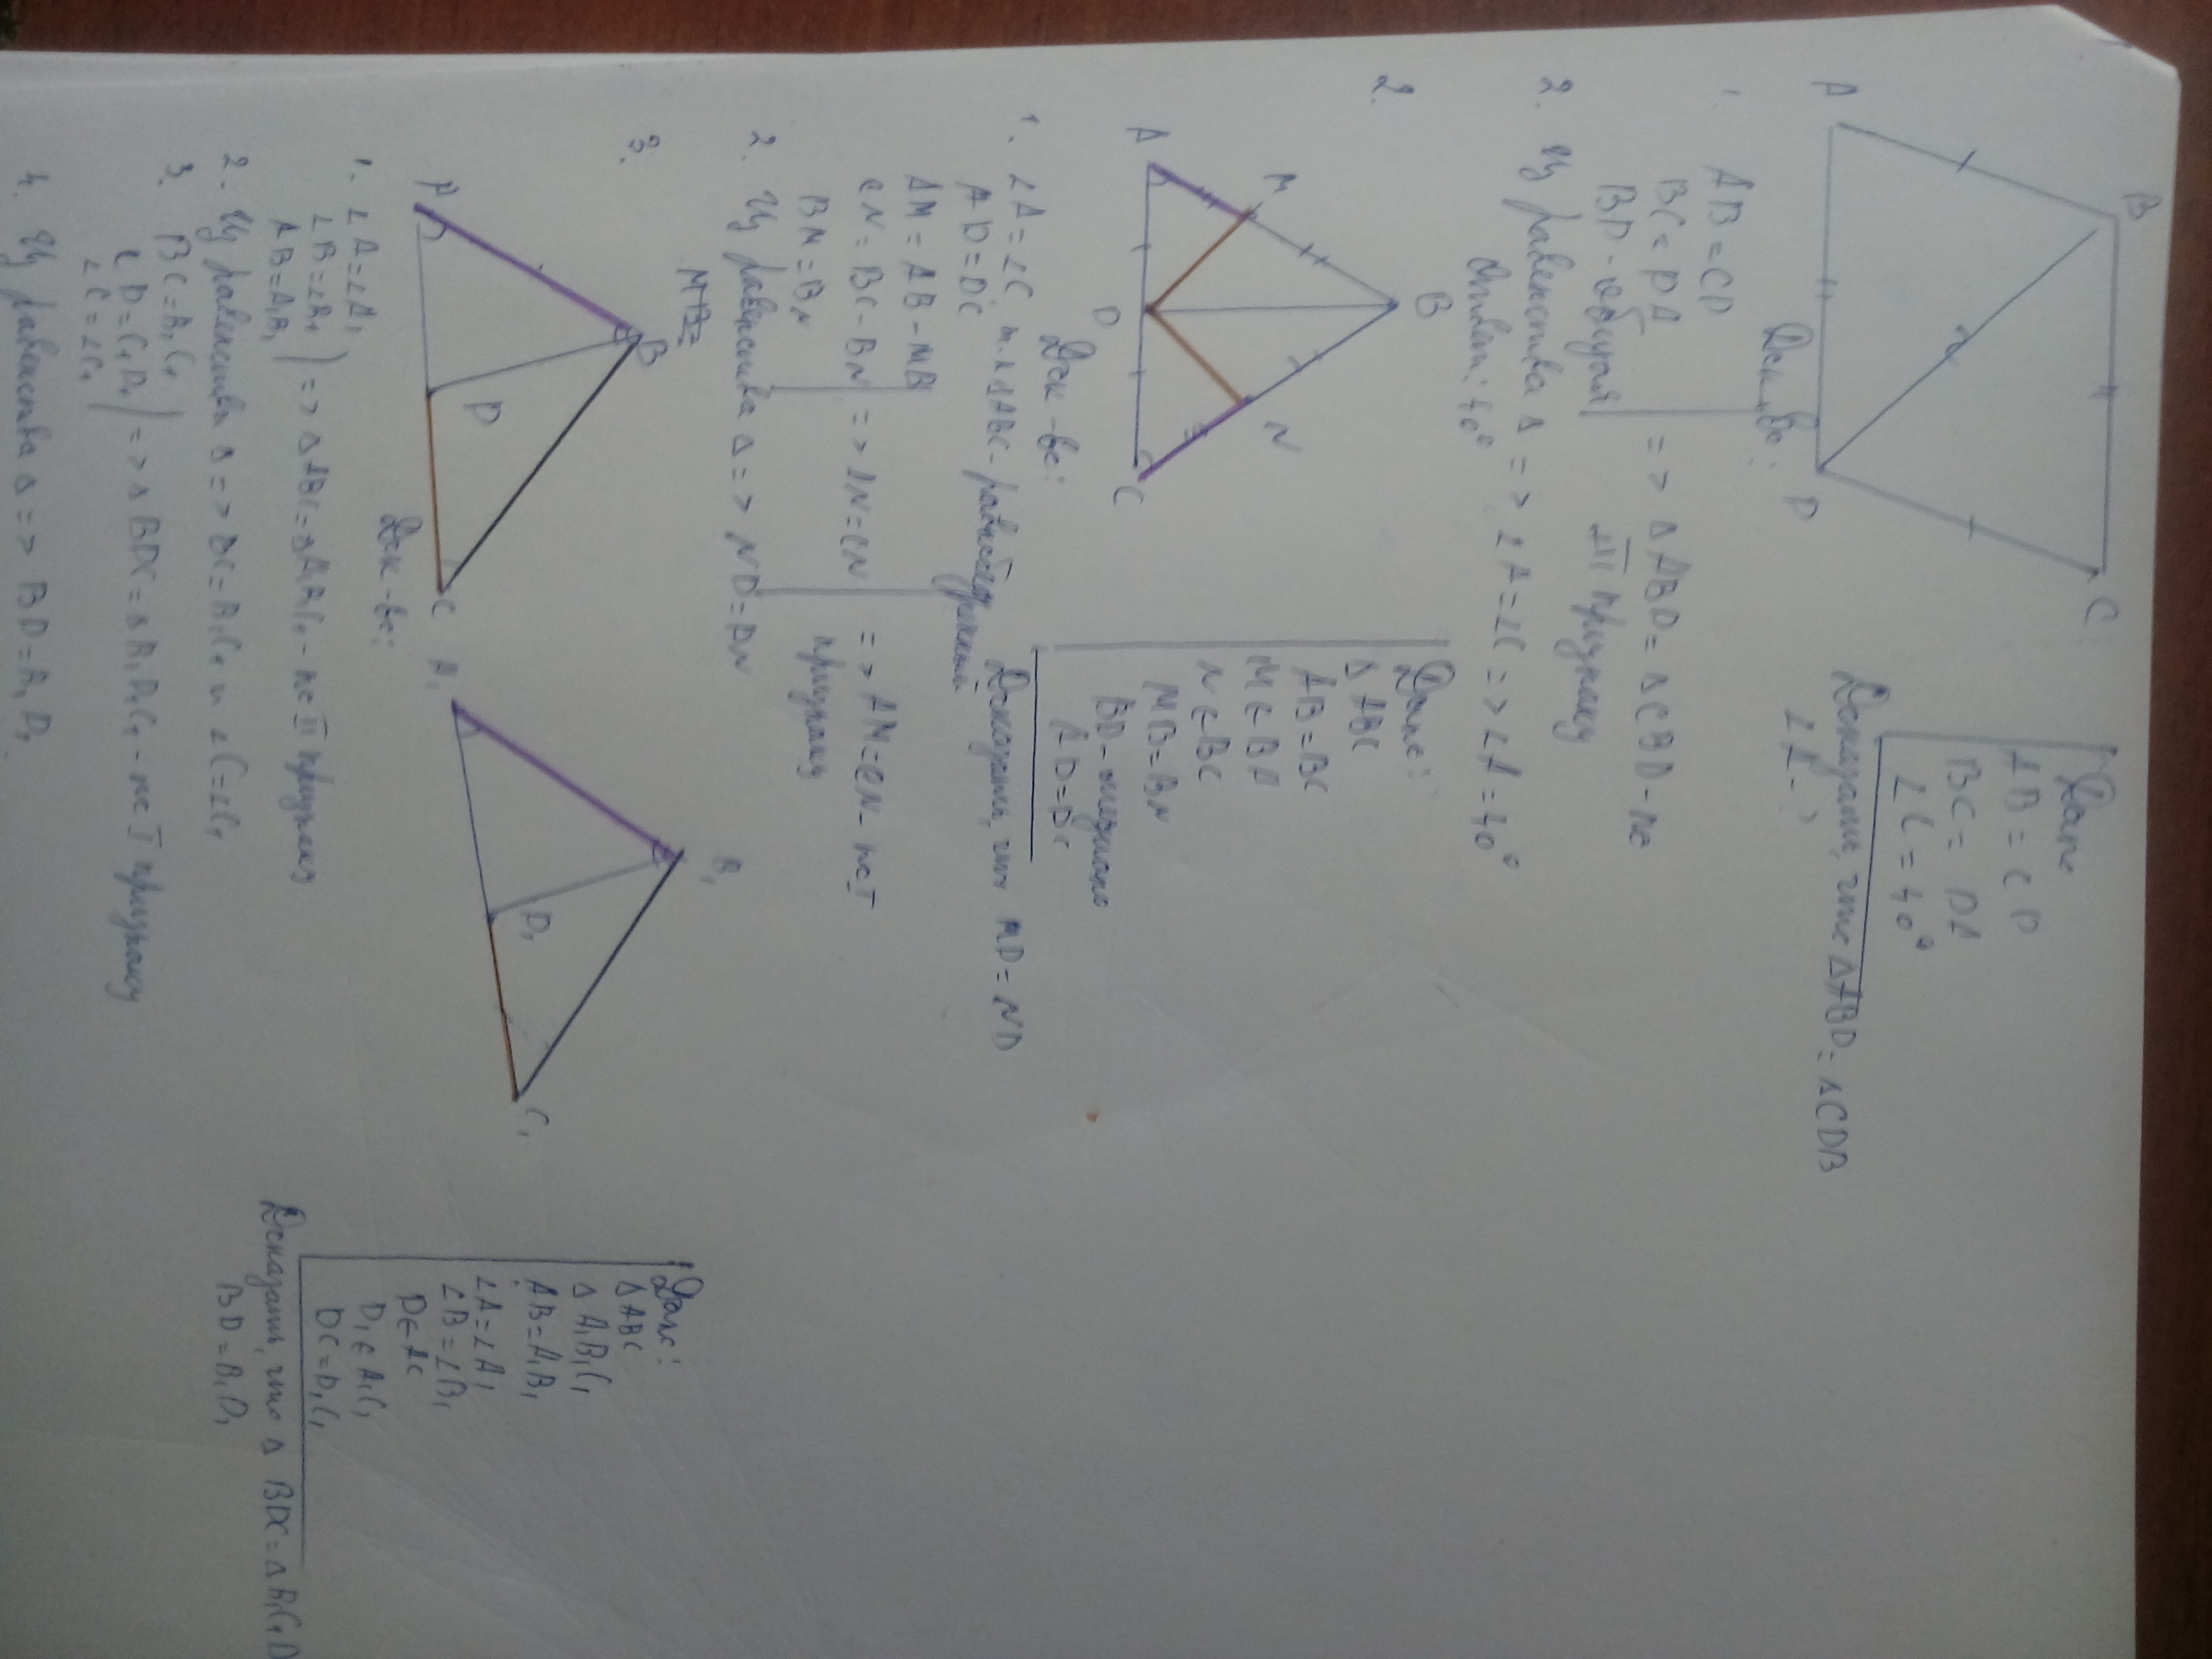 A
B
C
D
Дано
AB = CD
BC = DA
∠C = 40°
Доказать, что ΔABD = ΔCDB
∠A - ?
Док-во:
1. AB = CD
BC = DA
BD - общая
=> ΔABD = ΔCBD - по
III признаку
2. Из равенства Δ => ∠A = ∠C => ∠A = 40°
Ответ: 40°
2.
A
M
B
D
N
C
Дано:
ΔABC
AB = BC
M ∈ BA
N ∈ BC
MB = BN
BD - медиана
AD = DC
Доказать, что MD = ND
Док-во:
1. ∠A = ∠C т.к ΔABC - равнобедренный
AD = DC
AM = AB - MB
CN = BC - BN
BM = BN
=> AM = CN - по I
признаку
2. Из равенства Δ => ND = DN
MB =
3.
A
B
D
C
A₁
B₁
D₁
C₁
Дано:
ΔABC
ΔA₁B₁C₁
AB = A₁B₁
∠A = ∠A₁
∠B = ∠B₁
D ∈ AC
D₁ ∈ A₁C₁
DC = D₁C₁
Доказать, что ΔBDC = ΔB₁C₁D
BD = B₁D₁
Док-во:
1. ∠A = ∠A₁
∠B = ∠B₁
AB = A₁B₁
=> ΔABC = ΔA₁B₁C₁ - по II признаку
2. Из равенства Δ => BC = B₁C₁ и ∠C = ∠C₁
3. BC = B₁C₁
CD = C₁D₁
∠C = ∠C₁
=> ΔBDC = ΔB₁D₁C₁ - по I признаку
4. Из равенства Δ => BD = B₁D₁.